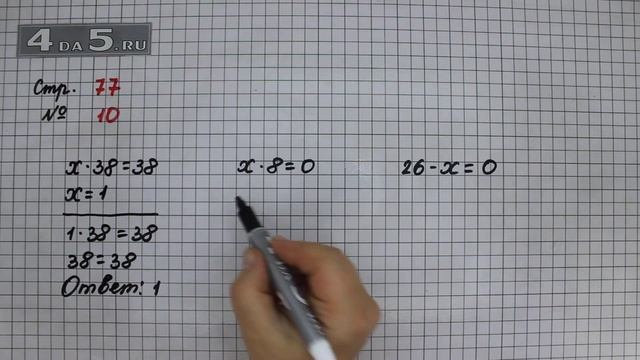 4 DA 5.RU
Стр. 77
№ 10
x · 38 = 38
x = 1
1 · 38 = 38
38 = 38
Ответ: 1
x · 8 = 0
26 - x = 0